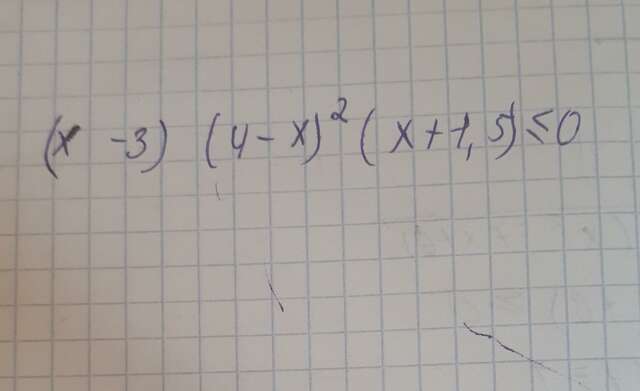 (x -3) (4-x)² (x+1,5) ≤0